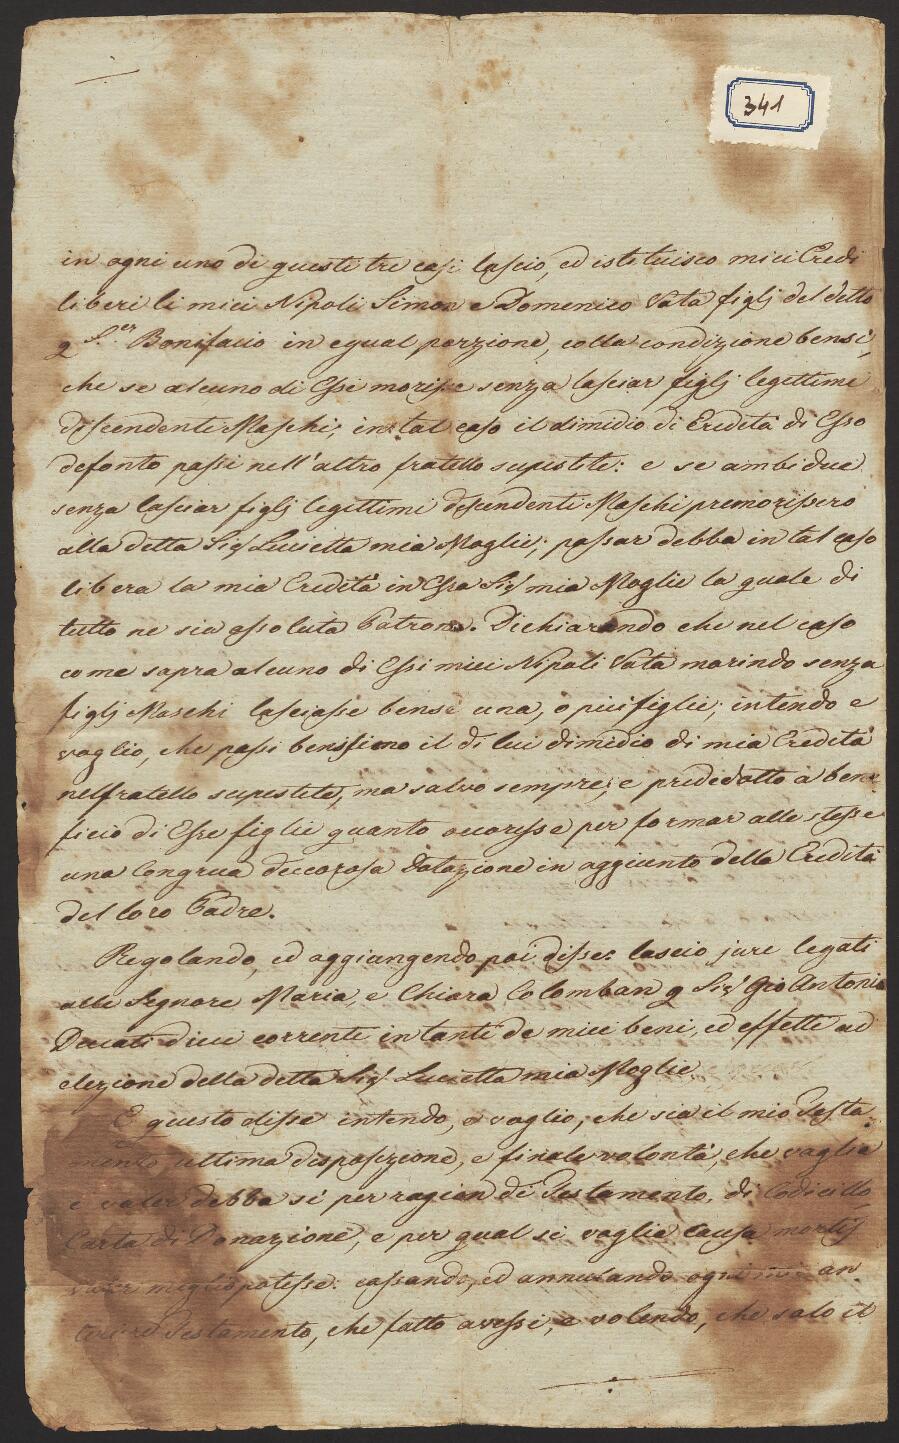 341
in ogni uno di questi tre casi lascio, ed istituisco miei Eredi
liberi li miei Nipoti Simon e Domenico Vata figlj del detto
q Sr. Bonifacio in egual porzione, colla condizione bensì,
che se alcuno di Essi morisse senza lasciar figlj legittimi
discendenti Maschi; in tal caso il dimidio di Eredità di Esso
defonto passi nell'altro fratello supestite: e se ambidue
senza lasciar figlj legittimi discendenti Maschi premorissero
alla detta Sigr Lucietta mia Moglie; passar debba in tal caso
libera la mia Eredità in Essa Sigr mia Moglie la quale di
tutto ne sia assoluta Patrona. Dichiarando che nel caso
come sopra alcuno di Essi miei Nipoti Vata morindo senza
figlj Maschi lasciasse bensì una, o più figlie; intendo e
voglio, che passi benissimo il di lui dimidio di mia Eredità
nel fratello supestite, ma salvo sempre, e prededotto a bene
ficio di Esse figlie quanto occoresse per formar alle stesse
una Congrua deccorosa Dotazione in aggiunto della Eredità
del loro Padre.
Regolando, ed aggiungendo poi disse: lascio jure legati
alle Signore Maria, e Chiara Colomban q Sigr Gio Antonio
Duccati dieci correnti in tanti de miei beni, ed effetti ad
elezione della detta Sigr Lucietta mia Moglie
E questo disse intendo, e voglio, che sia il mio Testa
mento ultima disposizione, e finale volontà, che vaglia
e valer debba sì per ragion di Testamento, di Codicillo,
Carta di Donazione, e per qual si voglia causa mortis
valer meglio potesse: cassando, ed annulando ogni mio an
teriore Testamento, che fatto avessi, e volendo, che solo il